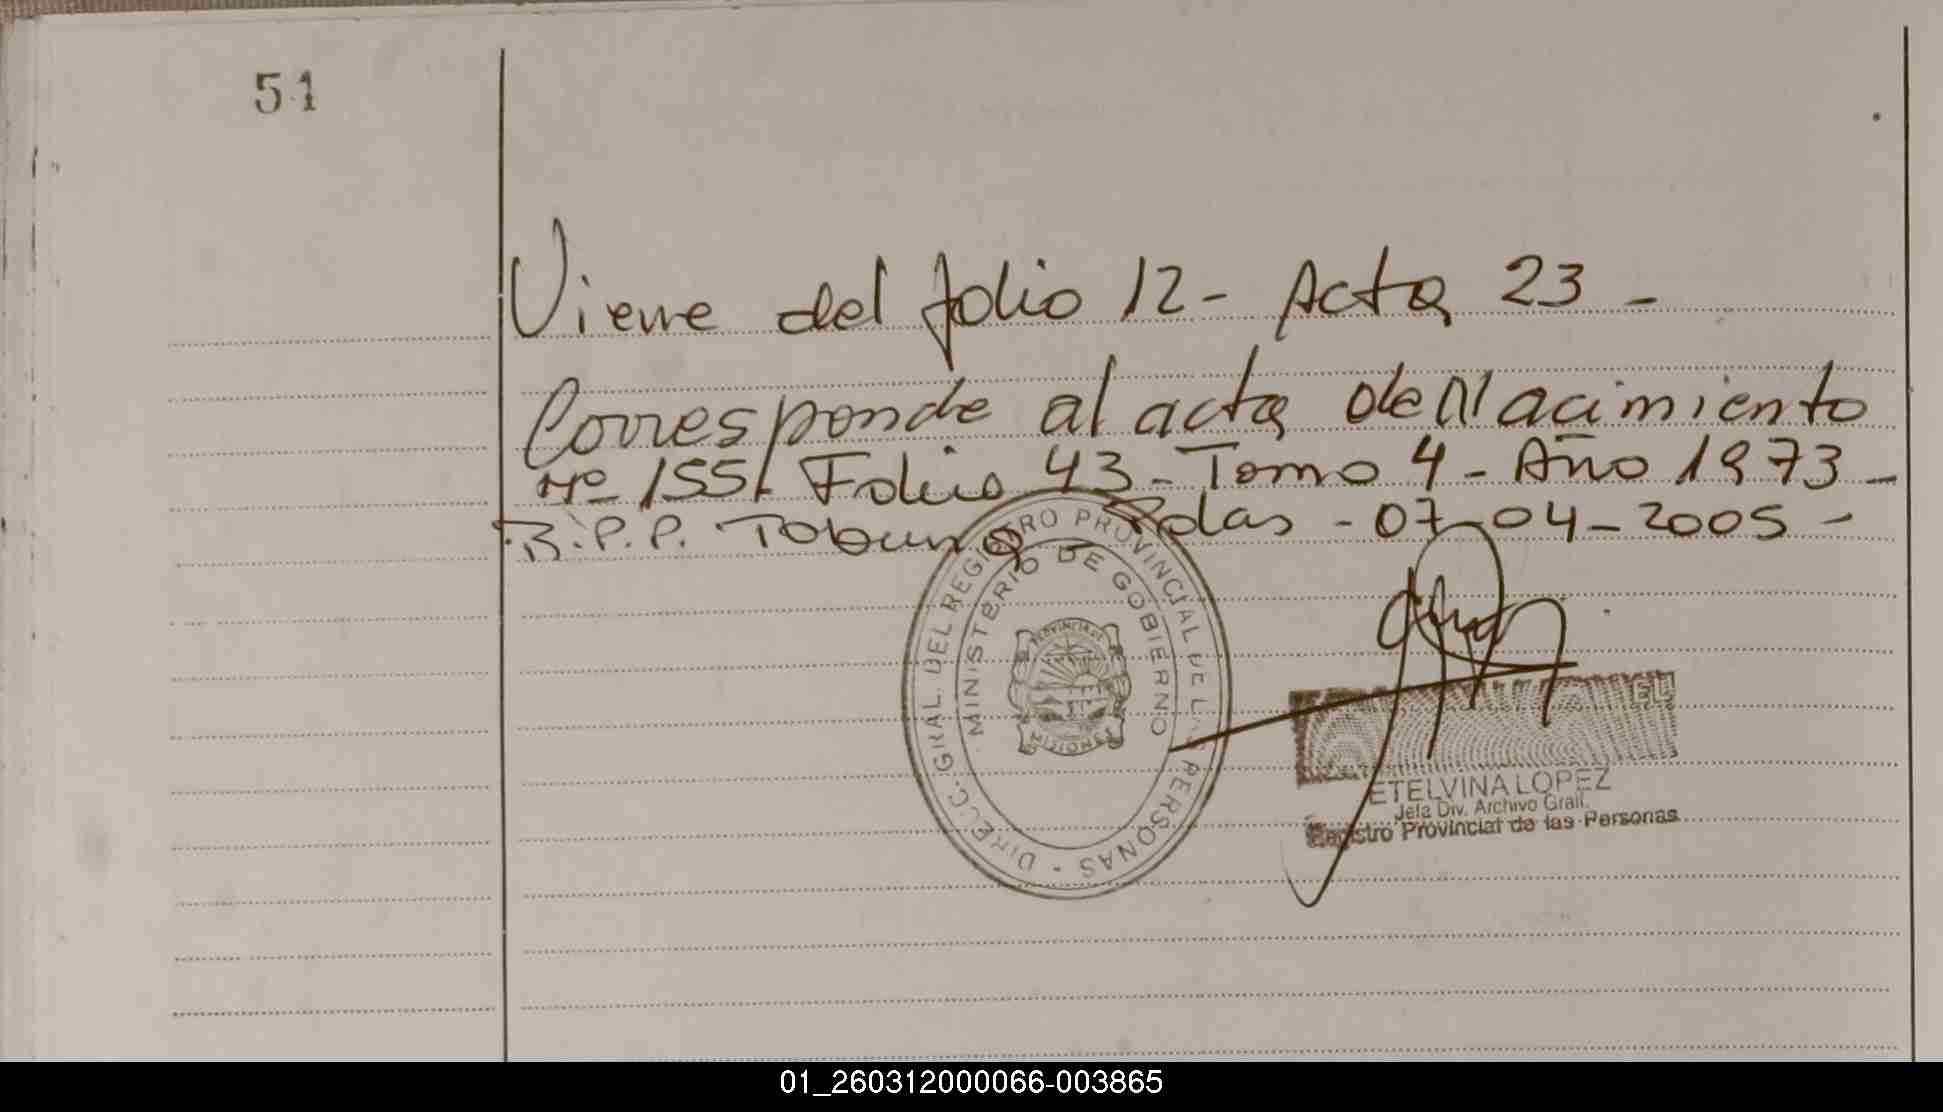 51
Viene del folio 12 - Acta 23 -
Corresponde al acta de Nacimiento
Nº 1551 Folio 43 - Tomo 4 - Año 1973 -
R.P.P. Pdas - 07-04-2005 -
DIRECC. GRAL. DEL REGISTRO PROVINCIAL DE LAS PERSONAS -
MINISTERIO DE GOBIERNO
PROVINCIA DE
MISIONES
ETELVINA LOPEZ
Jefa Div. Archivo Grall.
Registro Provincial de las Personas
01_260312000066-003865